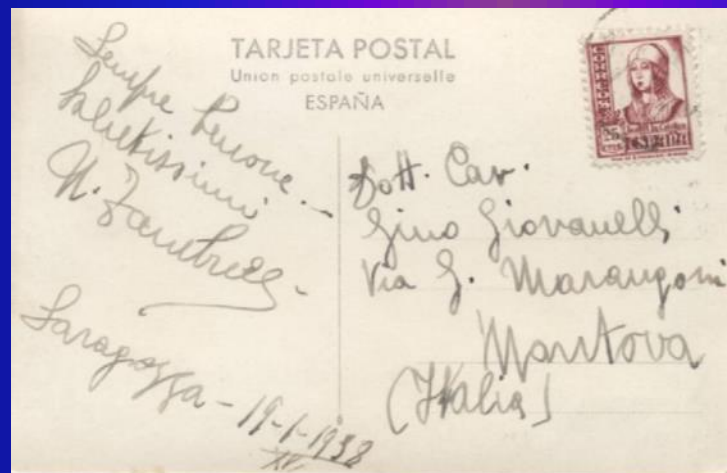 TARJETA POSTAL
Union postale universelle
ESPAÑA
CORREOS
Sempre benone -
Salutissimi
Saragozza - 19-1-1938
XVI
Dott. Cav.
Gino Giovanelli
Via G. Marangoni
Mantova
(Italia)